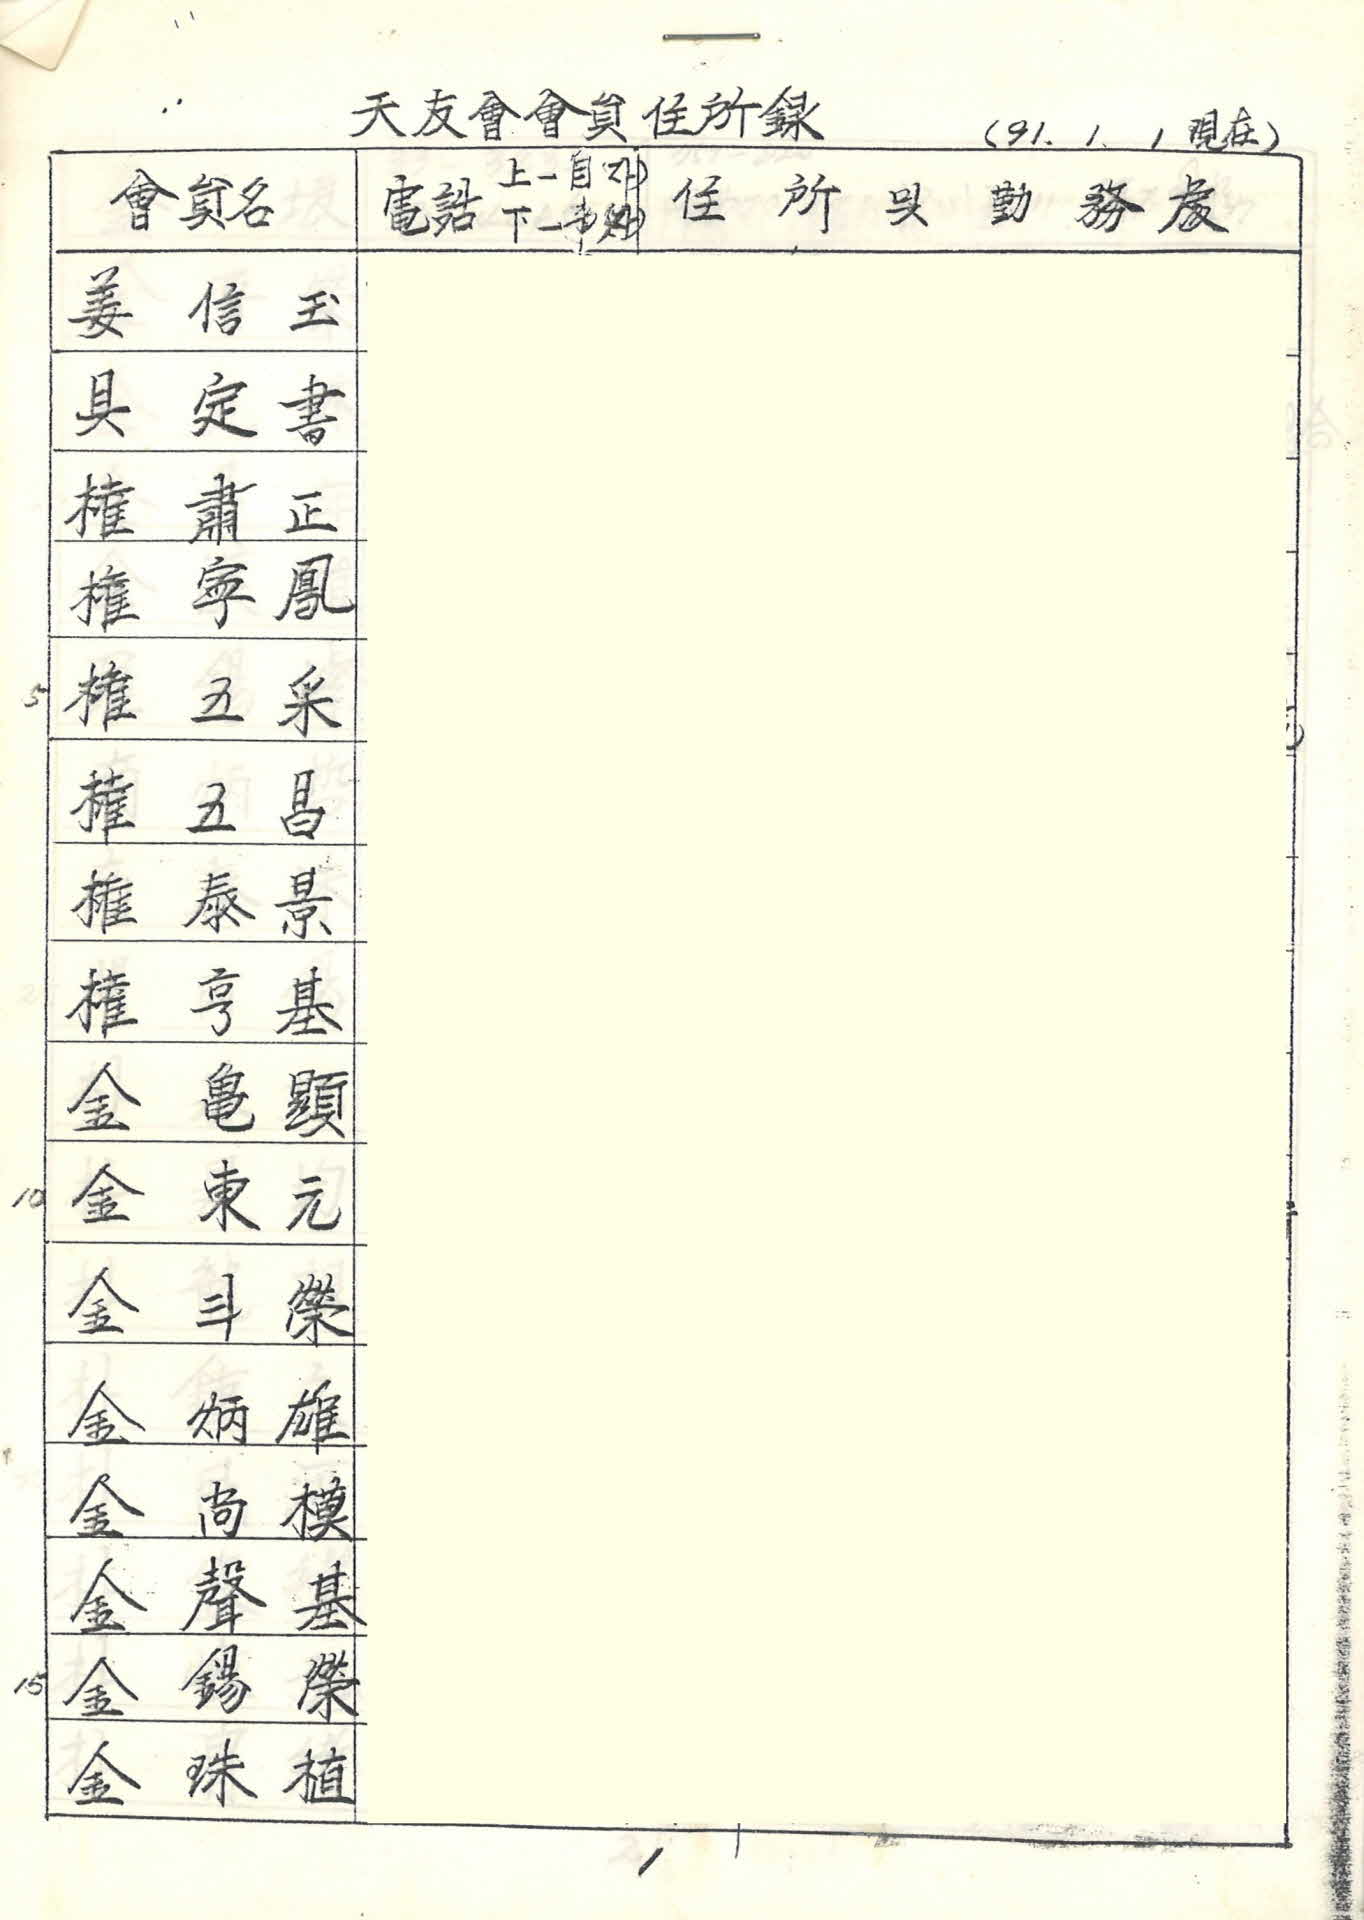 天友會會員住所録
(91. 1. 1 現在)
會員名 電話 上-自 下- 住所 및 勤務處
姜信玉
具定書
權肅正
權寧鳳
5 權五采
權五昌
權泰景
權亨基
金亀顕
10 金東元
金斗榮
金炳雄
金尚模
金聲基
15 金錫榮
金珠植
1